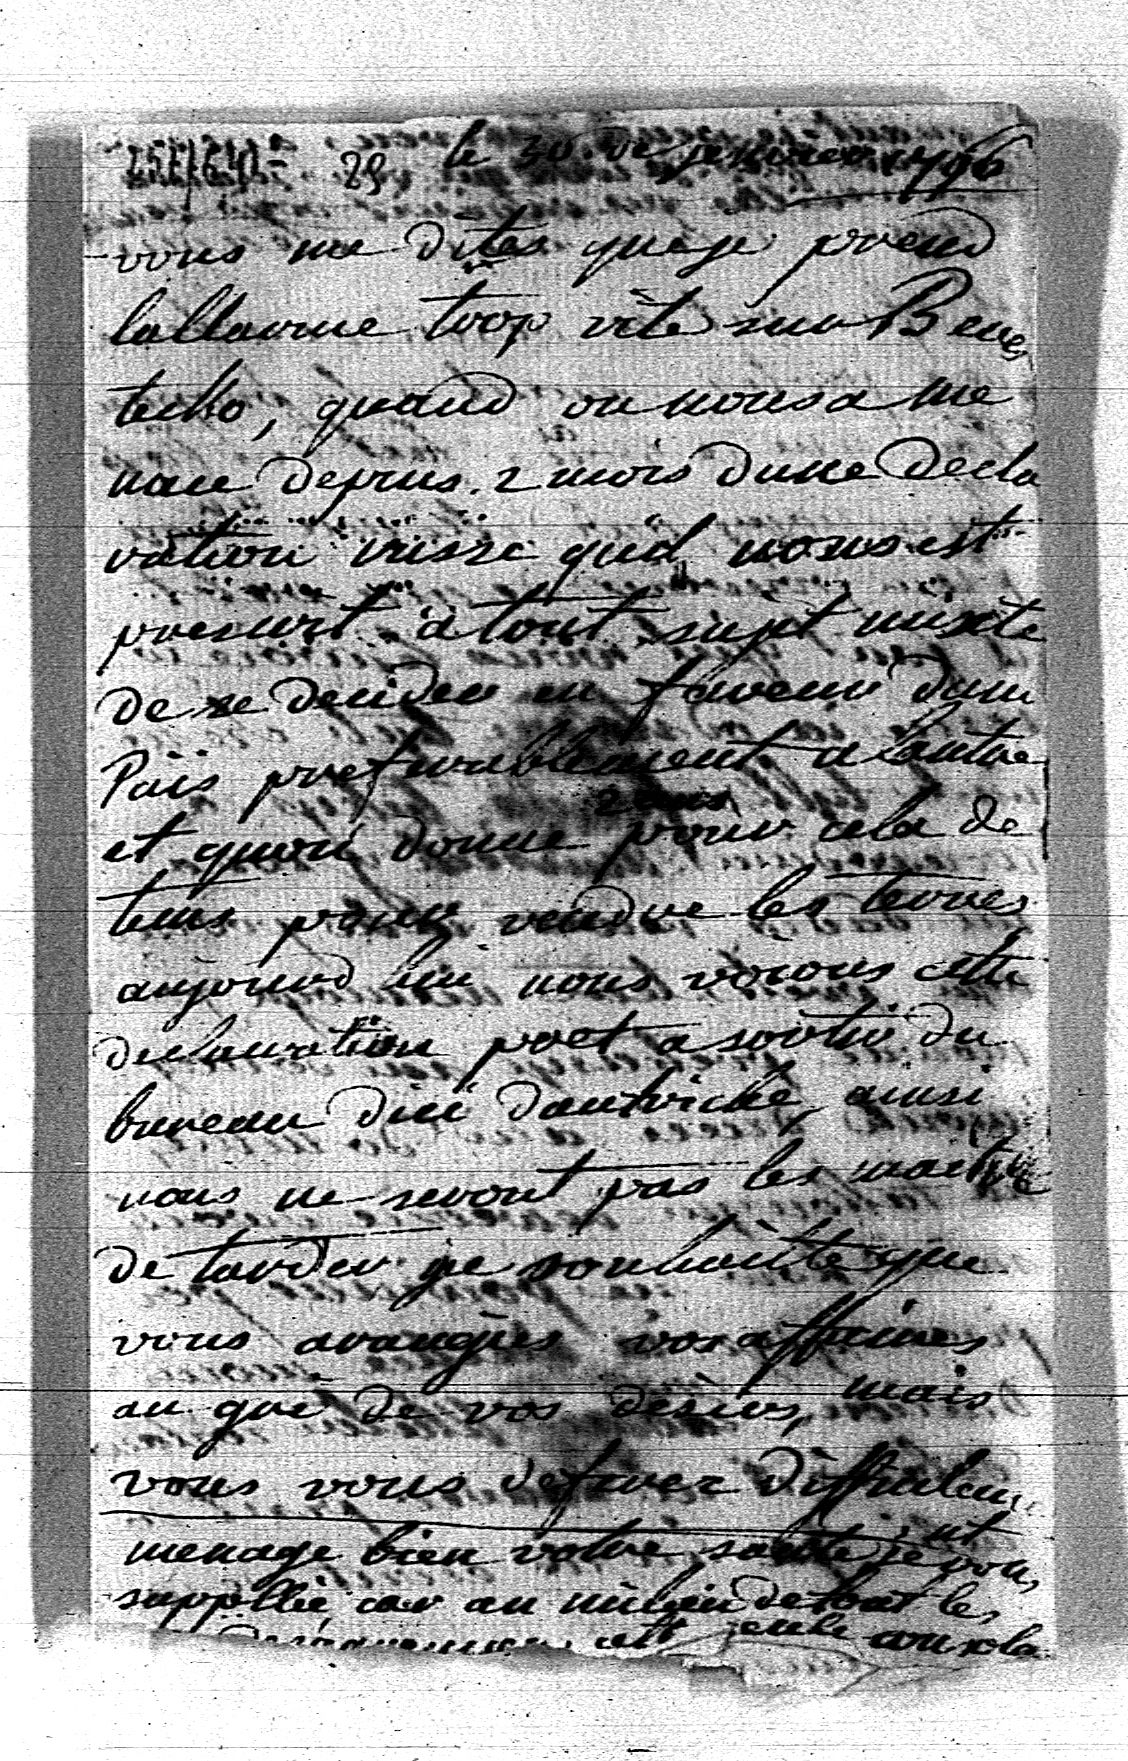 29, le 30 de janvier 1796
vous me dites que je prend
lallarme trop vite sur Beres
tecko, quand on nous a me
nacé depuis 2 mois dune decla
ration russe quil nous est
prescrit à tout sujet mixte
de se decider en faveur dun
Païs preferablement a lautre
et quon donne pour cela de
2 ans
tems pour vendre les terres
aujourd hui nous voions cette
declaration pret a sortir du
bureau dici dautriche, ainsi
nous ne seront pas les maitre
de tarder je souhaite que
vous arangiés vos affaires
au gré de vos desirs, mais
vous vous deferez difficilem
ent
menage bien votre santé je vous
supplie, car au milieu de tout les
cett seule consola